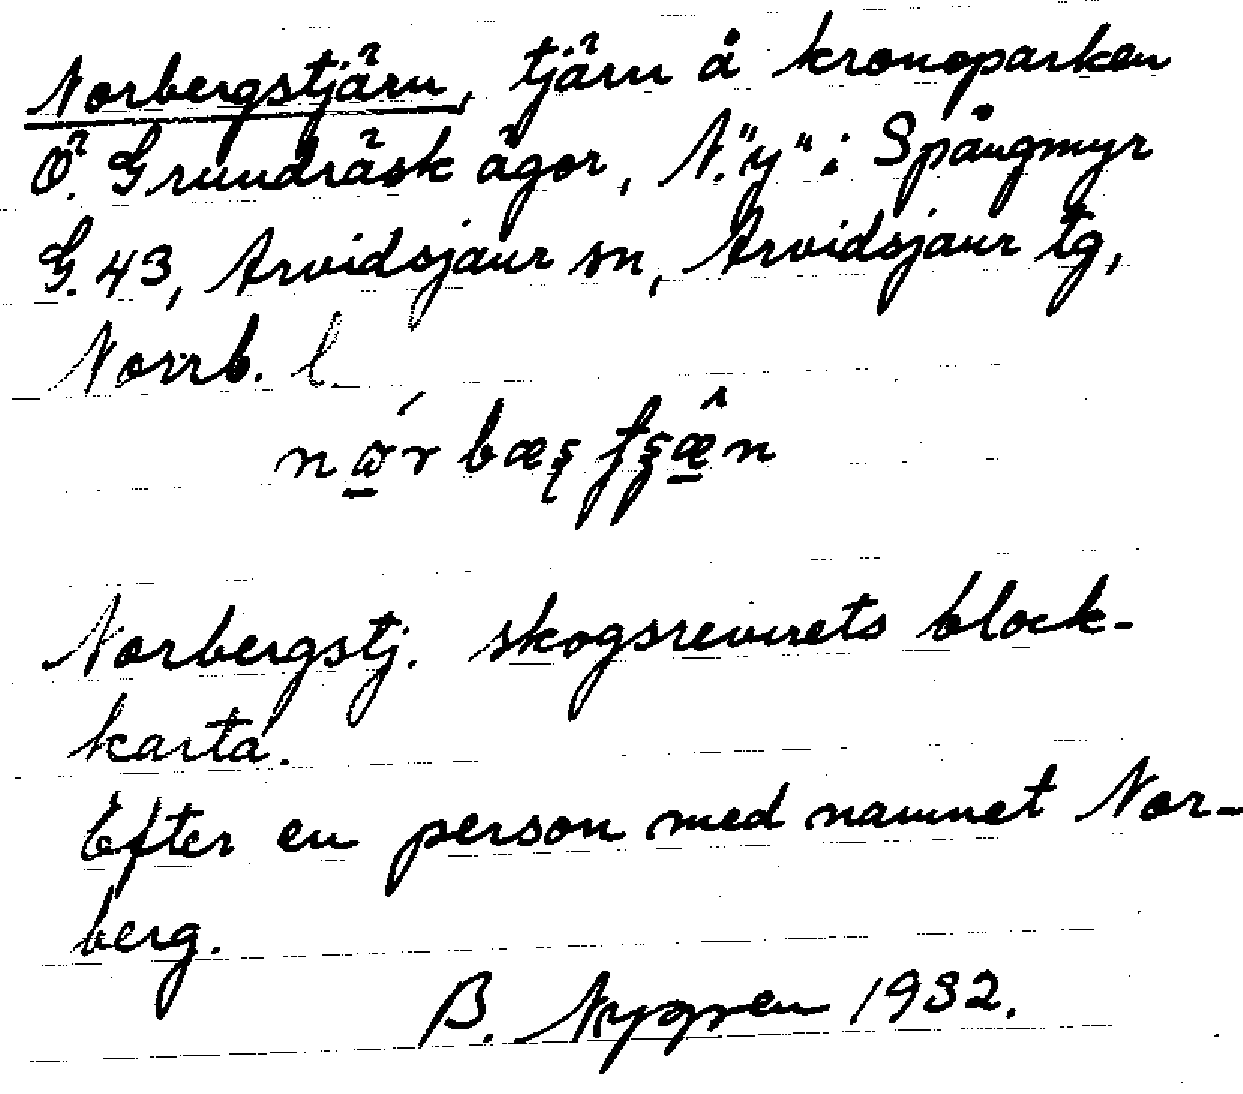 Norbergstjärn, tjärn å kronoparken
Ö. Grundräsk ägor, N. "y" i Spångmyr
G. 43, Arvidsjaur sn, Arvidsjaur tg,
Norrb. l.
Norbergstj. skogsrevirets block-
karta.
Efter en person med namnet Nor-
berg.
B. Nygren 1932.